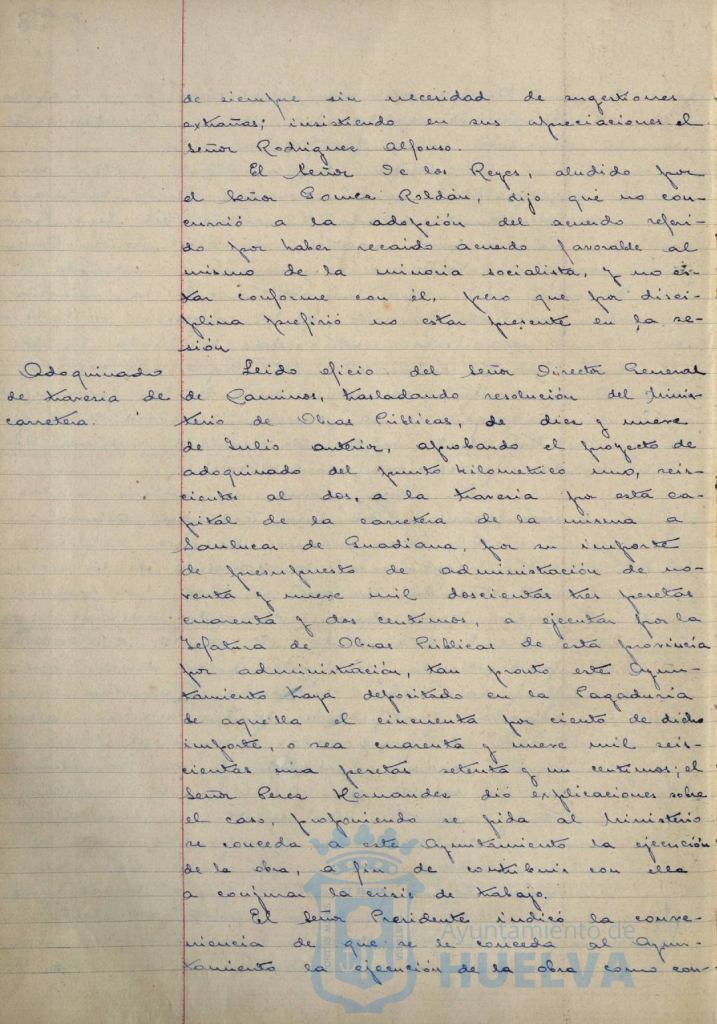 de siempre sin necesidad de sugestiones
extrañas; insistiendo en sus apreciaciones el
Señor Rodriguez Alfonso.
El Señor De los Reyes, aludido por
el Señor Gomez Roldán, dijo que no con-
currió a la adopción del acuerdo referi-
do por haber recaido acuerdo favorable al
mismo de la minoria socialista, y no es-
tar conforme con él, pero que por disci-
plina prefirió no estar presente en la se-
sión
Adoquinado
de travesia de
carretera.
Leido oficio del Señor Director General
de Caminos, trasladando resolución del Minis-
terio de Obras Públicas, de diez y nueve
de Julio anterior, aprobando el proyecto de
adoquinado del punto kilometrico uno, seis-
cientos al dos, a la travesia por esta ca-
pital de la carretera de la misma a
Sanlucar de Guadiana, por su importe
de presupuesto de administración de no-
venta y nueve mil doscientas tres pesetas
cuarenta y dos centimos, a ejecutar por la
Jefatura de Obras Públicas de esta provincia
por administración, tan pronto este Ayun-
tamiento haya depositado en la Pagaduria
de aquella el cincuenta por ciento de dicho
importe, o sea cuarenta y nueve mil seis-
cientas una pesetas setenta y un centimos; el
Señor Perez Hernandez dió explicaciones sobre
el caso, proponiendo se pida al Ministerio
se conceda a este Ayuntamiento la ejecución
de la obra, a fin de contribuir con ella
a conjurar la crisis de trabajo.
El Señor Presidente indicó la conve-
niencia de que se se conceda al Ayun-
tamiento la ejecución de la obra como con-
Ayuntamiento de
HUELVA